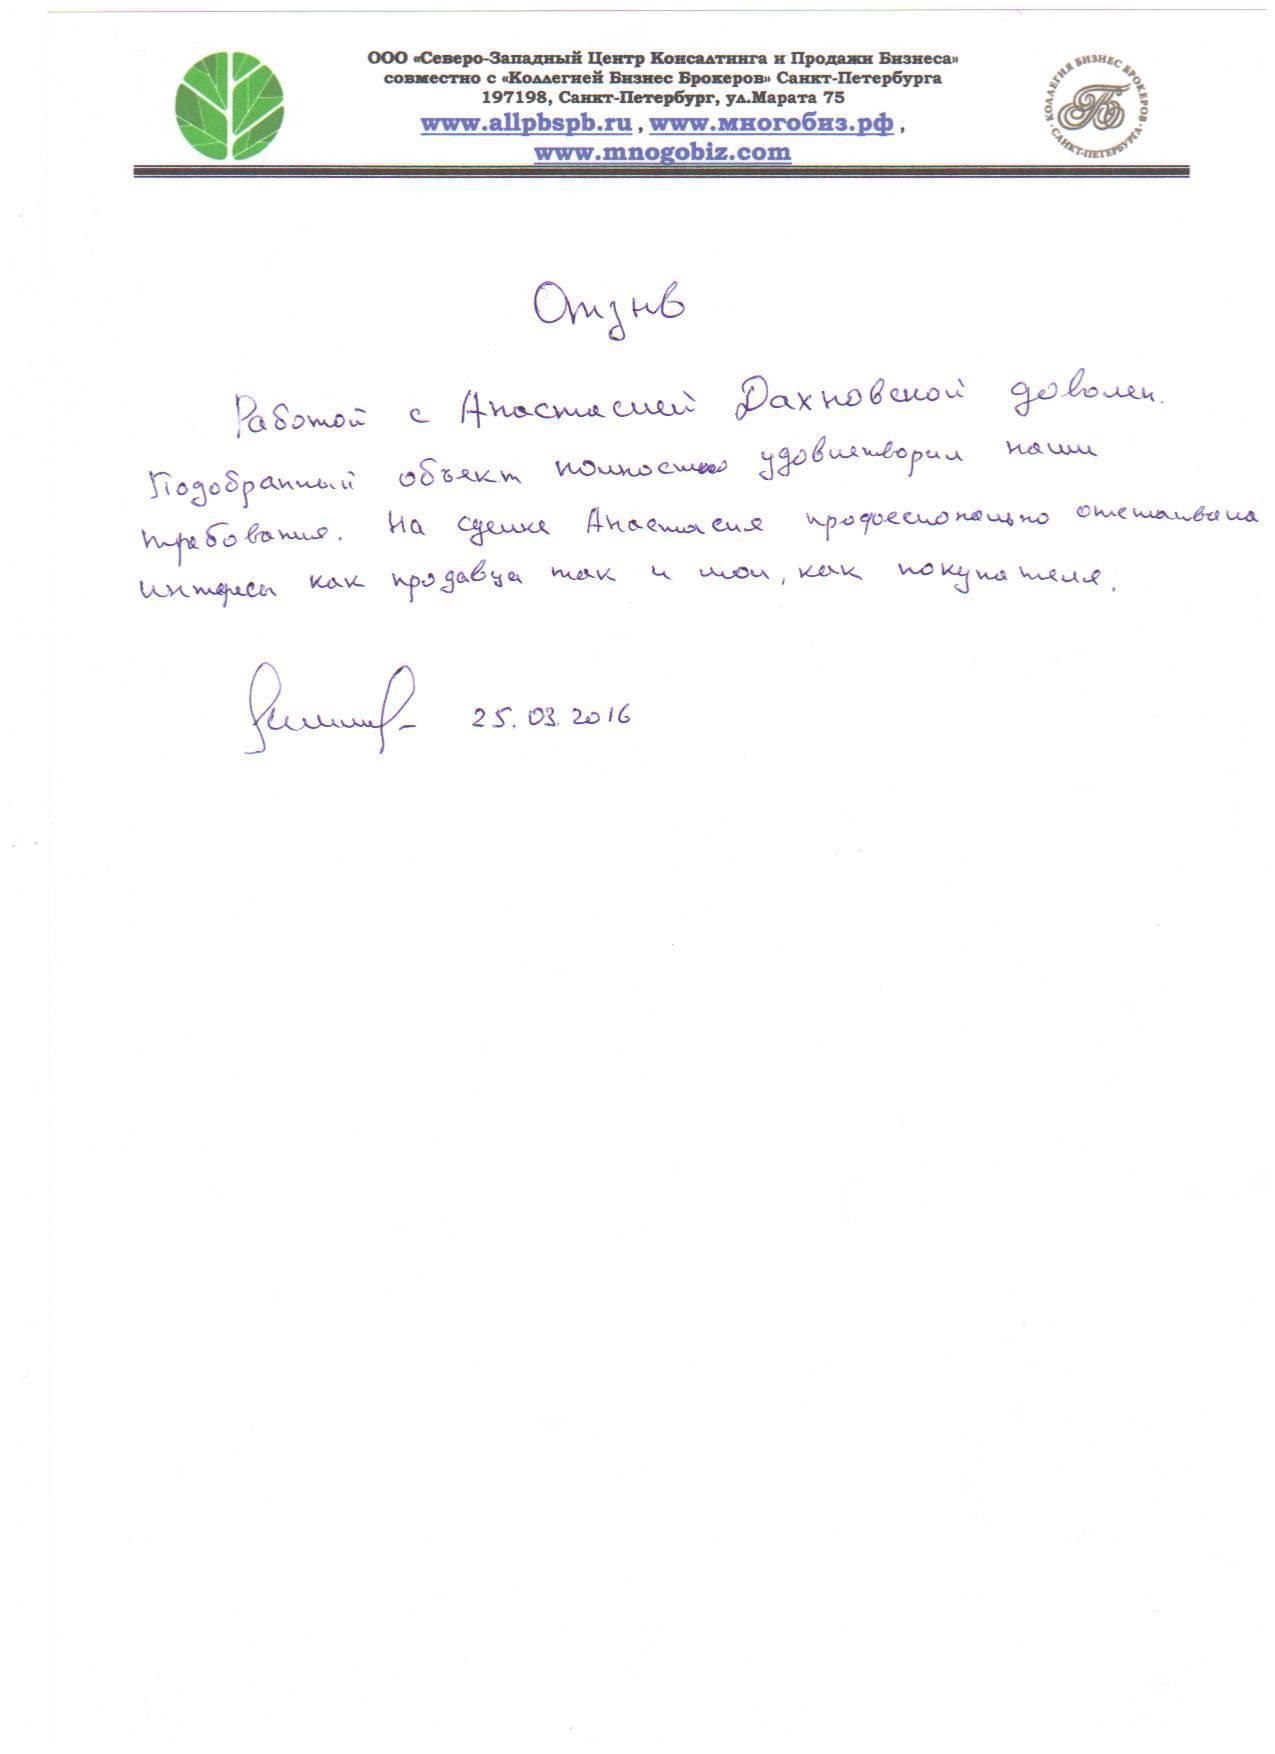 ООО «Северо-Западный Центр Консалтинга и Продажи Бизнеса»
совместно с «Коллегией Бизнес Брокеров» Санкт-Петербурга
197198, Санкт-Петербург, ул.Марата 75
www.allpbspb.ru , www.многобиз.рф ,
www.mnogobiz.com
КОЛЛЕГИЯ БИЗНЕС БРОКЕРОВ
САНКТ-ПЕТЕРБУРГА
Отзыв
Работой с Анастасией Дахновской доволен.
Подобранный объект полностью удовлетворил наши
требования. На сделке Анастасия профессионально отстаивала
интересы как продавца так и мои, как покупателя.
25.03.2016